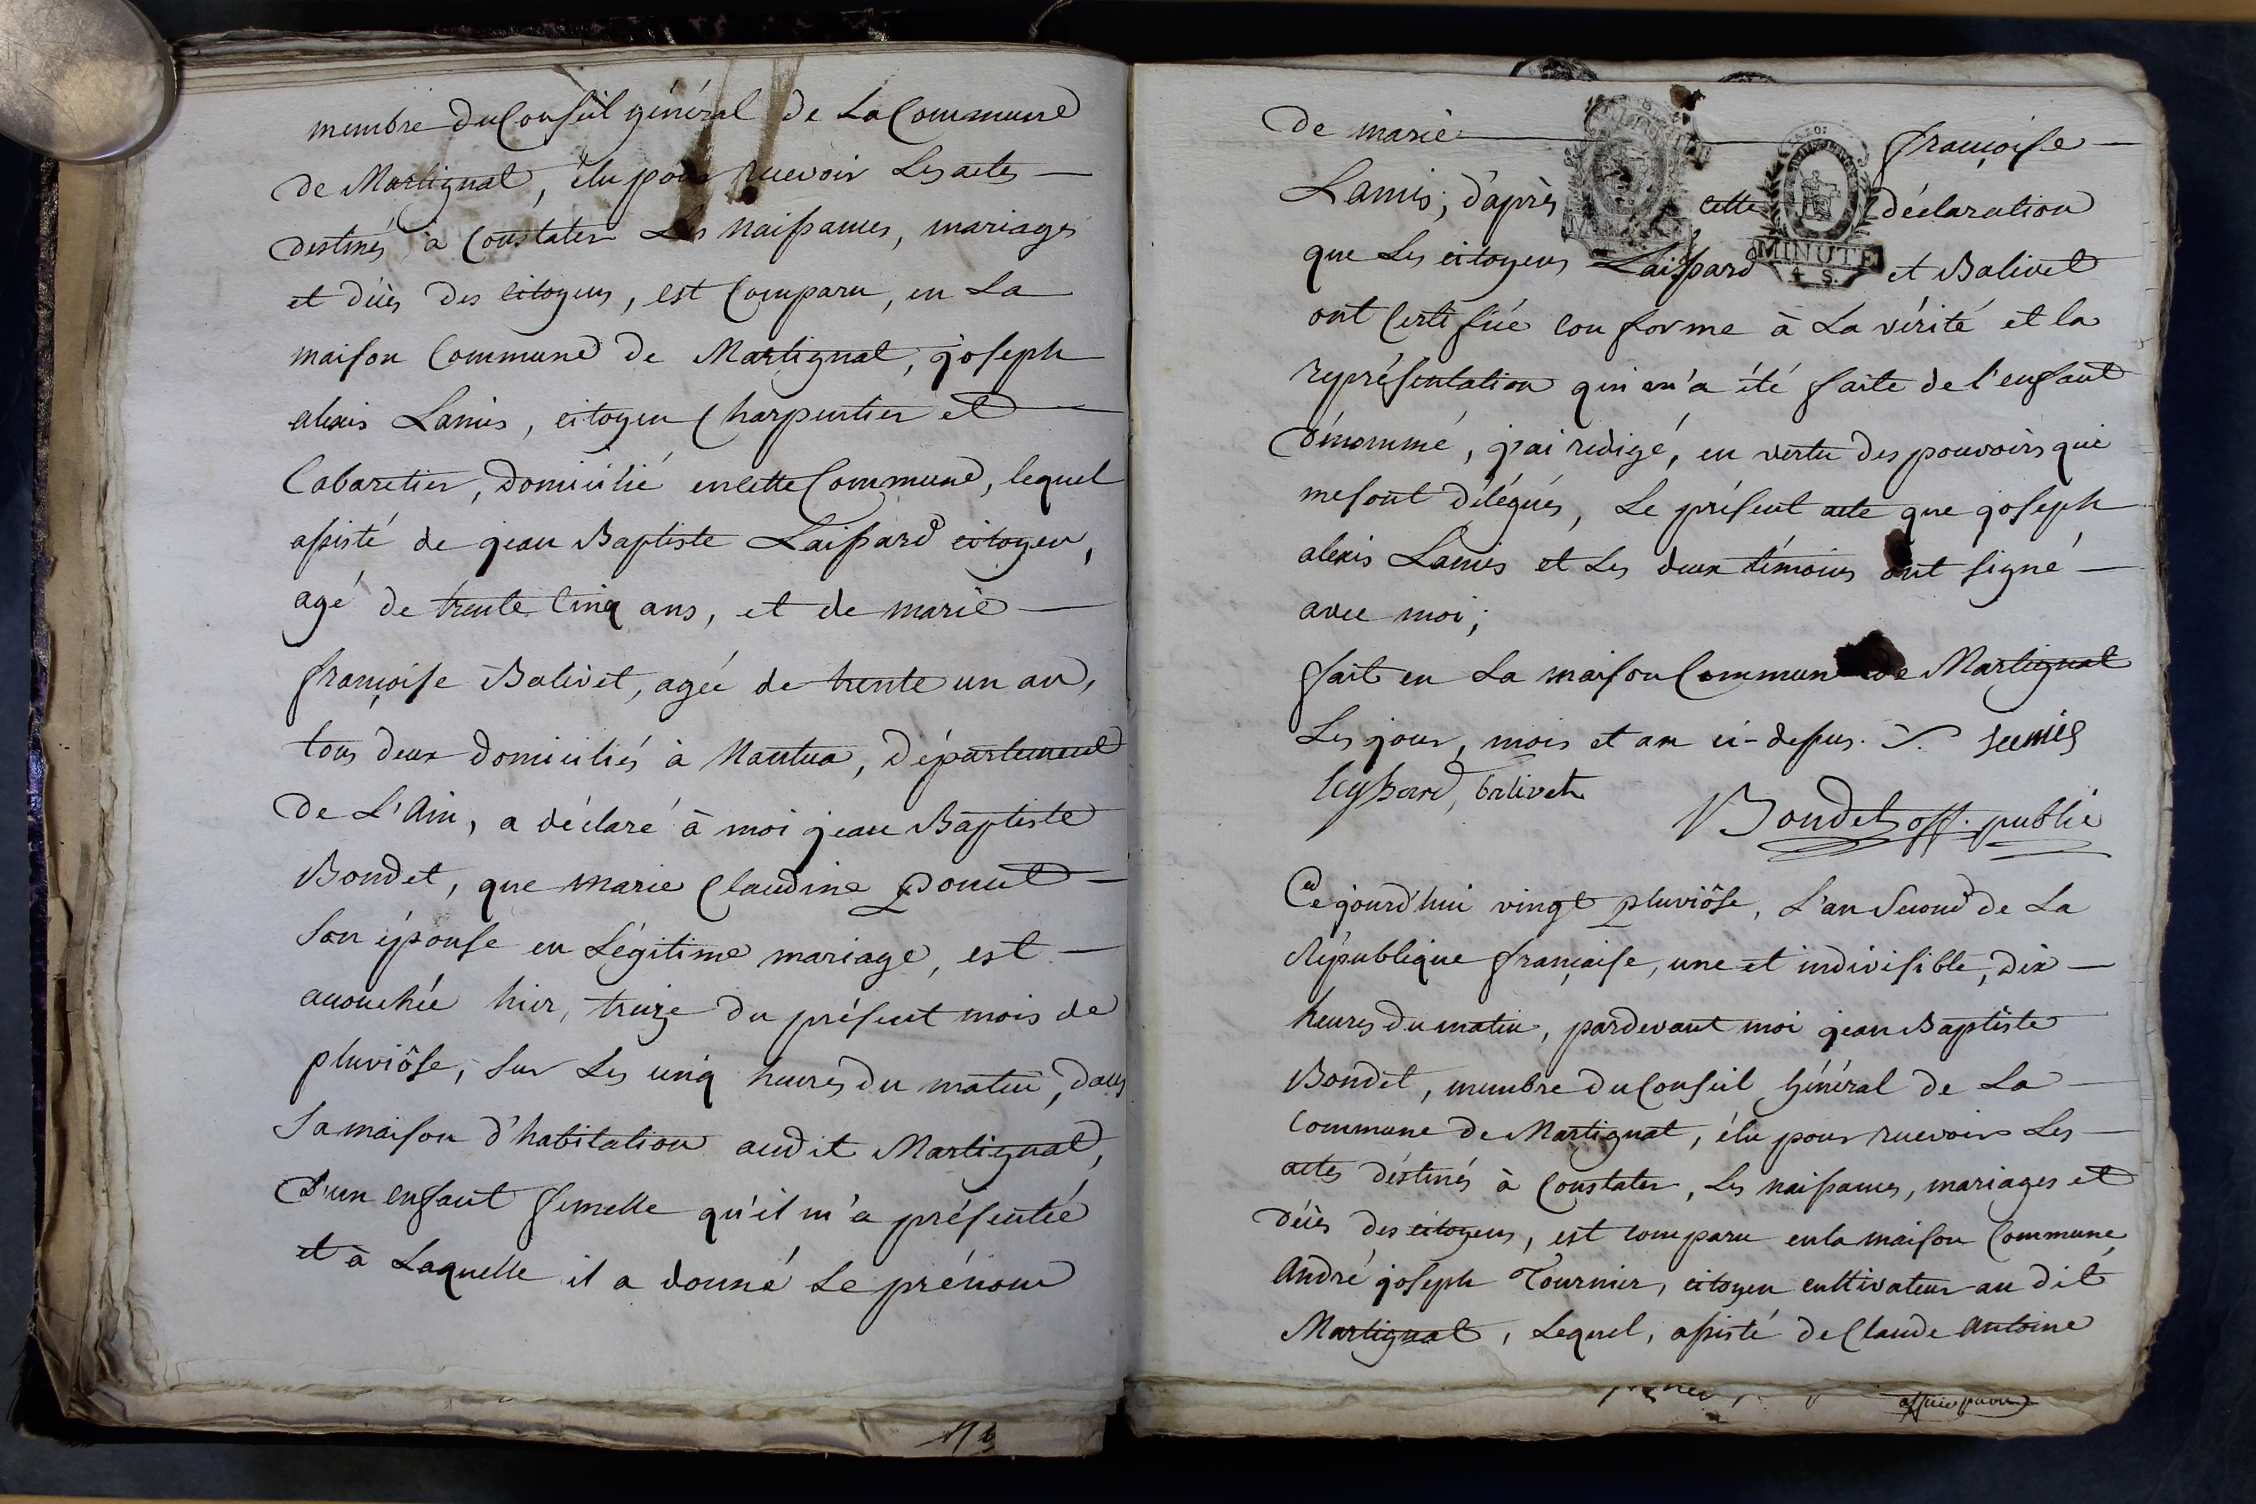 membre du Conseil général de La Commune
de Martignat, élu pour recevoir Les actes
destinés à Constater Les naissances, mariages
et décès des citoyens, est Comparu, en La
maison Commune de Martignat, joseph
alexis Lamis, citoyen Charpentier et
Cabaretier, domicilié en cette Commune, lequel
assisté de jean Baptiste Laissard citoyen,
agé de trente Cinq ans, et de marie
françoise Balivet, agée de trente un an,
tous deux domiciliés à Nantua, Département
de L'Ain, a déclaré à moi jean Baptiste
Bondet, que marie Claudine Poncet
son épouse en Légitime mariage, est
accouchée hier, treize du présent mois de
pluviôse, sur Les cinq heures du matin, dans
sa maison d'habitation audit Martignat,
d'un enfant femelle qu'il m'a présentée
et à Laquelle il a donné Le prénom
de marie françoise
Lamis; d'après cette déclaration
MINUTE
4 S.
que Les citoyens Laissard et Balivet
ont Certifiée conforme à La vérité et la
représentation qui m'a été faite de l'enfant
dénommé, j'ai redigé, en vertu des pouvoirs qui
me sont délégués, Le présent acte que joseph
alexis Lamis et Les deux témoins ont signé
avec moi;
fait en La maison Commune de Martignat
Les jour, mois et an ci-dessus. Lamis
leyssard, balivet
Bondet off. public
Ce jourd'hui vingt pluviôse, L'an Second de La
République française, une et indivisible, dix
heures du matin, pardevant moi jean Baptiste
Bondet, membre du Conseil Général de La
Commune de Martignat, élu pour recevoir Les
actes déstinés à Constater, Les naissances, mariages et
décès des citoyens, est comparu en la maison Commune
André joseph Tournier, citoyen cultivateur au dit
Martignat, Lequel, assisté de Claude Antoine